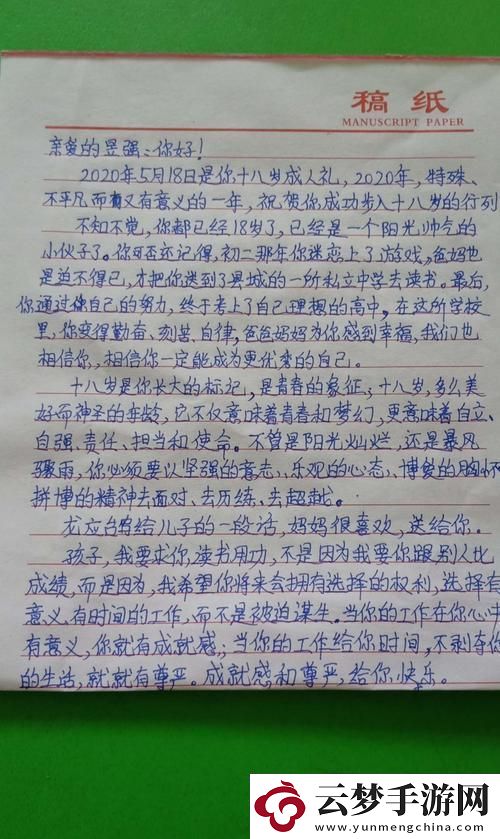 稿纸
MANUSCRIPT PAPER
亲爱的昱强:你好!
2020年5月18日是你十八岁成人礼,2020年,特殊、
不平凡而又有意义的一年,祝贺你成功步入十八岁的行列
不知不觉,你都已经18岁了,已经是一个阳光,帅气的
小伙子了。你可否还记得,初二那年你迷恋上了游戏,爸妈也
是迫不得已,才把你送到了县城的一所私立中学去读书。最后,
你通过你自己的努力,终于考上了自己理想的高中,在这所学校
里,你变得勤奋、刻苦、自律,爸爸妈妈为你感到幸福,我们也
相信你,相信你一定能成为更优秀的自己。
十八岁是你长大的标记,是青春的象征,十八岁,多么美
好而神圣的年龄,它不仅意味着青春和梦幻,更意味着自立、
自强、责任、担当和使命。不管是阳光灿烂,还是暴风
骤雨,你必须要以坚强的意志、乐观的心态、博爱的胸怀
拼博的精神去面对、去历练、去超越。
龙应台给儿子的一段话,妈妈很喜欢,送给你。
孩子,我要求你读书用功,不是因为我要你跟别人比
成绩,而是因为,我希望你将来会拥有选择的权利,选择有
意义、有时间的工作,而不是被迫谋生。当你的工作在你心中
有意义,你就有成就感,当你的工作给你时间,不剥夺你
的生活,就就有尊严。成就感和尊严,给你快乐。
云梦手游网
www.yunmengchina.com